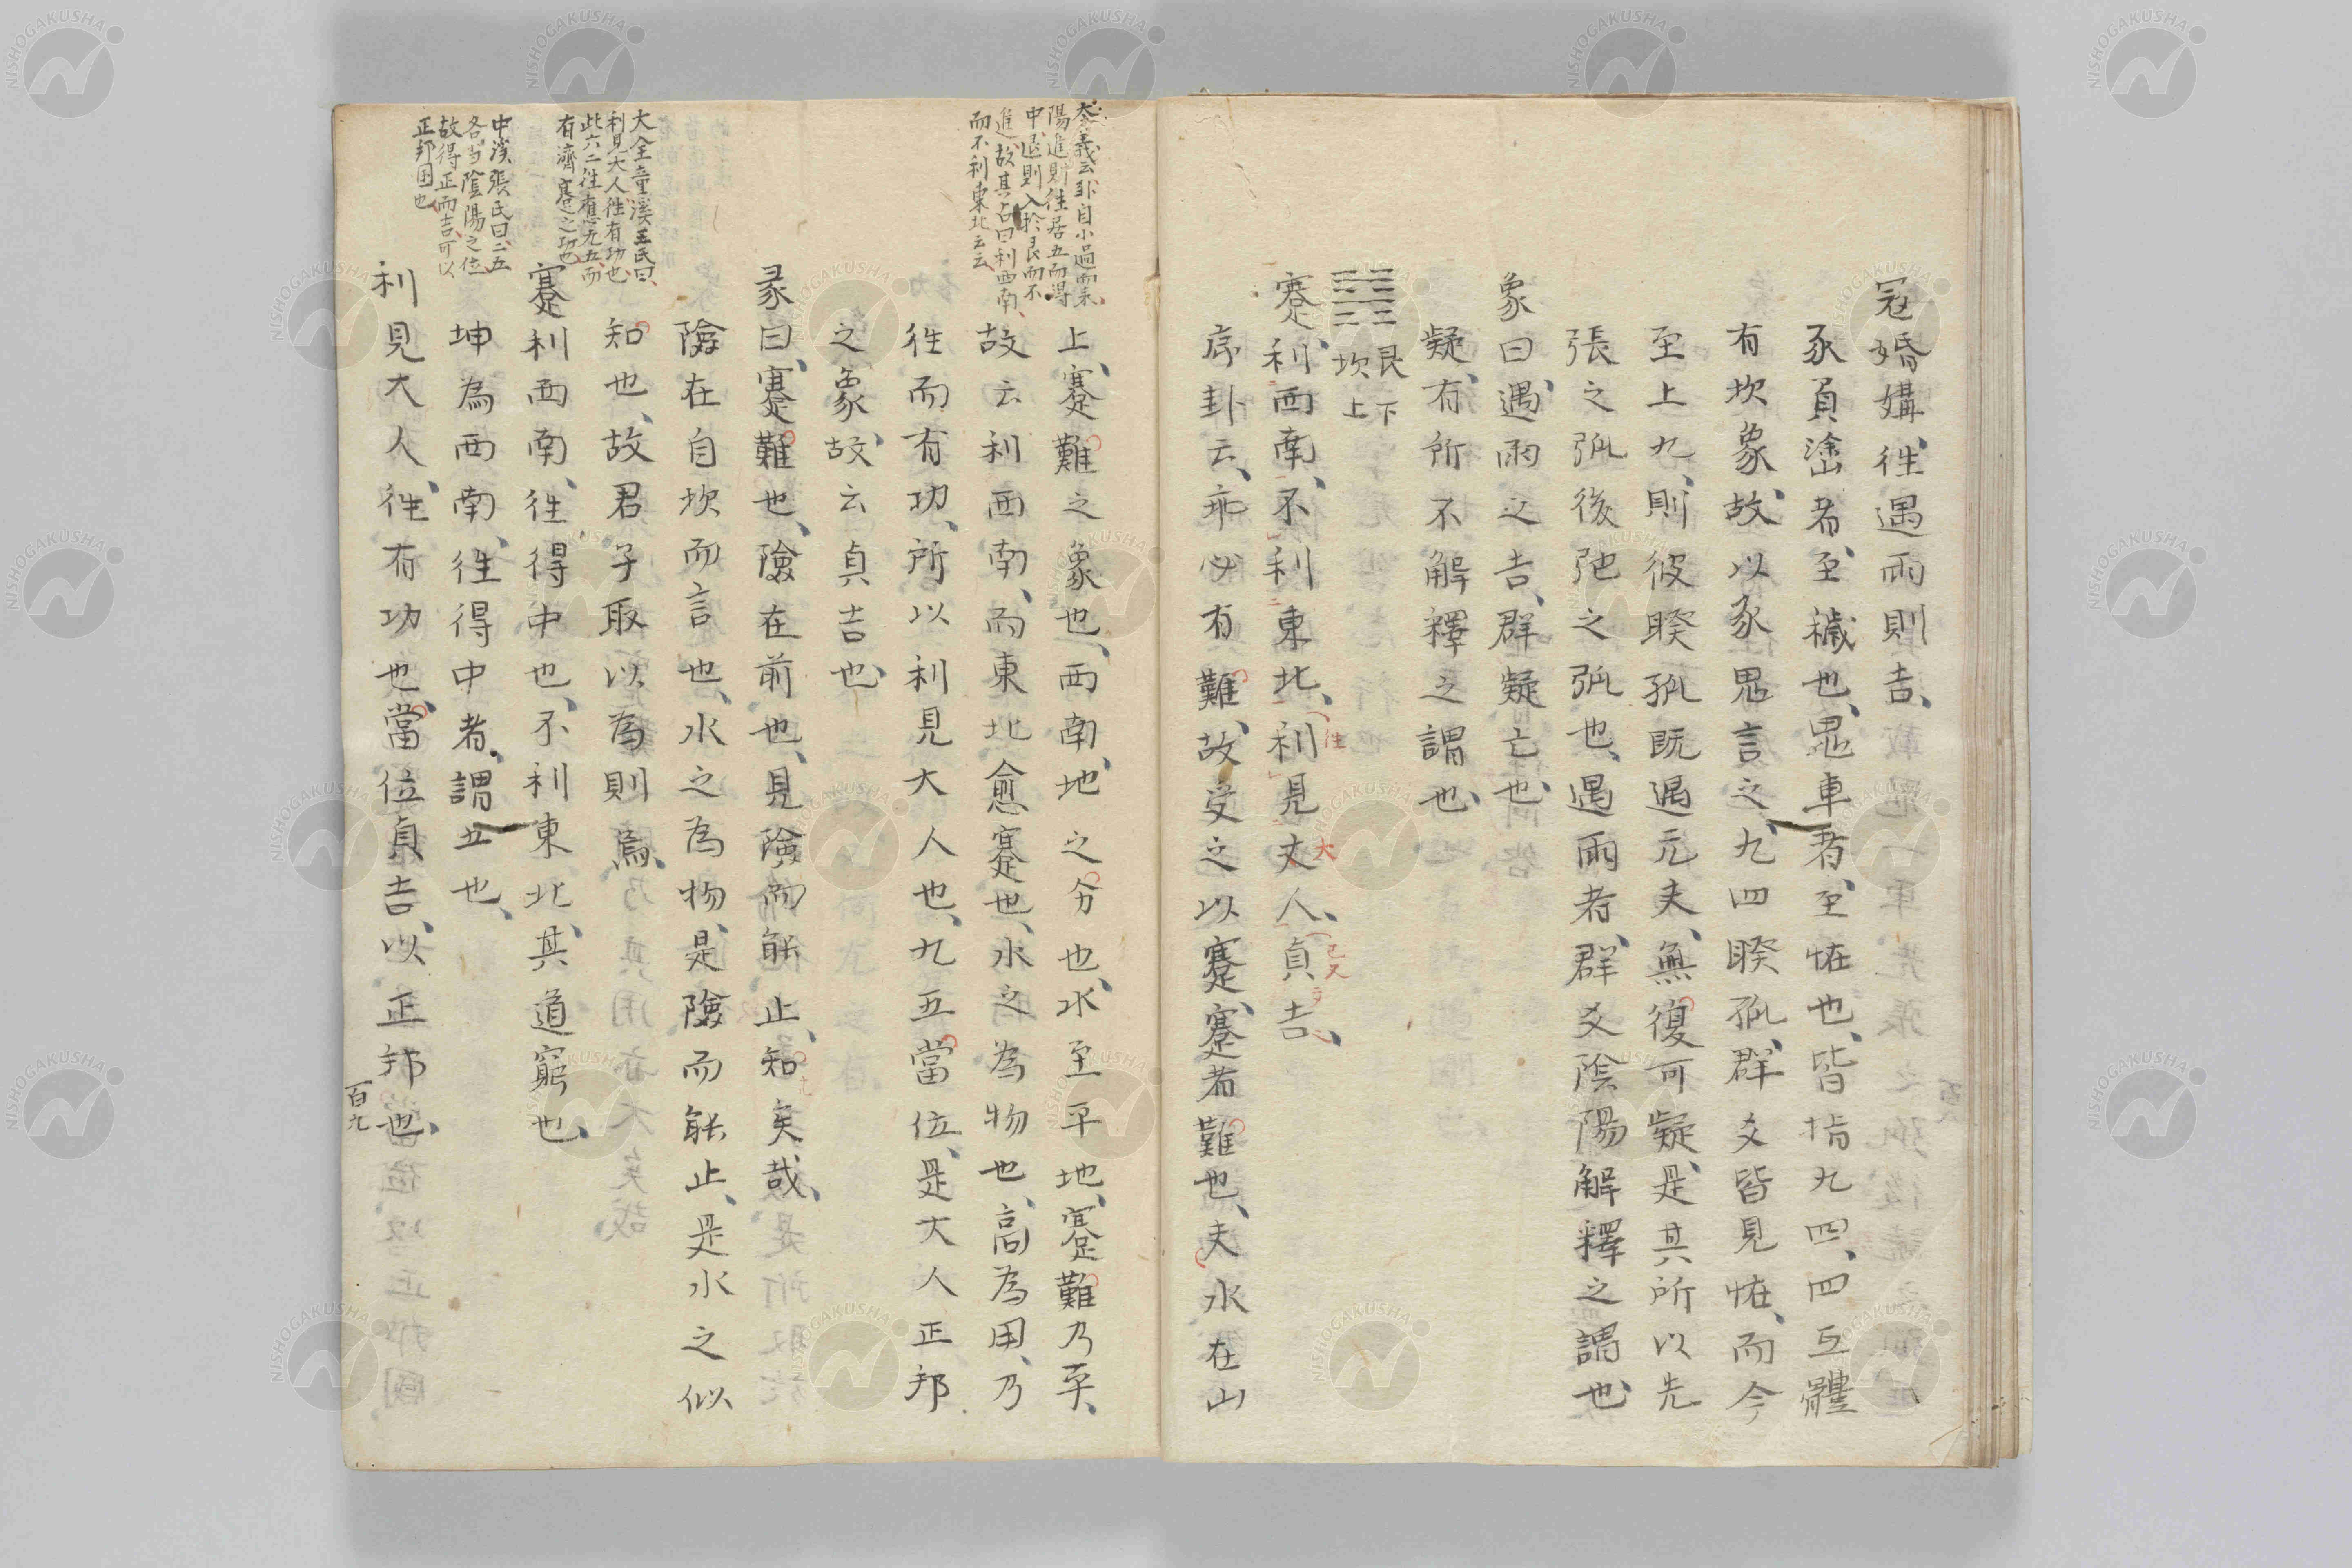 冦婚媾、徃遇雨則吉、
豕負塗者、至穢也、鬼車者、至恠也、皆指九四、四互體
有坎象、故以豕鬼言之、九四睽孤、群爻皆見恠、而今
至上九、則彼睽孤既遇元夫、無復可疑、是其所以先
張之弧後弛之弧也、遇雨者、群爻陰陽解釋之謂也、
象曰、遇雨之吉、群疑亡也、
疑、有所不解釋之謂也、
艮下
坎上
蹇、利西南、不利東北、利見大人、貞吉、
序卦云、乖必有難、故受之以蹇、蹇者難也、夫水在山
上、蹇難之象也、西南、地之分也、水至平地、蹇難乃平、
故云利西南、而東北愈蹇也、水之為物也、高為用、乃
徃而有功、所以利見大人也、九五當位、是大人正邦
之象、故云貞吉也、
彖曰、蹇難也、險在前也、見險而能止、知矣哉、
險在自坎而言也、水之為物、是險而能止、是水之似
知也、故君子取以為則焉、
蹇利西南、徃得中也、不利東北、其道窮也、
坤為西南、徃得中者、謂五也、
利見大人、徃有功也、當位貞吉、以正邦也、
本義云卦自小過而来
陽進則徃居五而得
中退則入於艮而不
進故其占曰利西南
而不利東北云云
大全童溪王氏曰
利見大人徃有功也
此六二徃應九五而
有濟蹇之功也
中溪張氏曰二五
各當陰陽之位
故得正而吉可以
正邦国也
百九